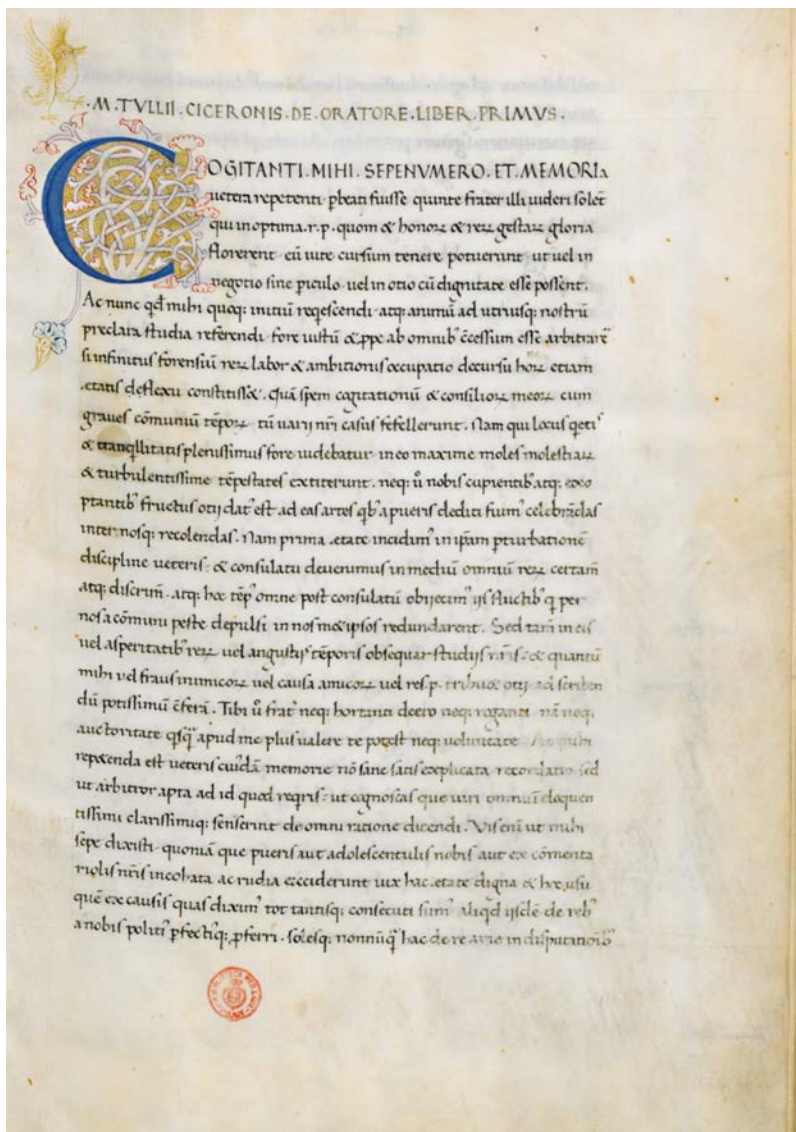 .M.TVLLII.CICERONIS.DE.ORATORE.LIBER.PRIMVS.
COGITANTI.MIHI.SEPENVMERO.ET.MEMORIA
uetera repetenti ꝑbeati fuisse quinte frater illi uideri solēt
qui in optima.r.p. quom & honoꝝ & reꝝ gestaꝝ gloria
florerent eū uite cursum tenere potuerunt ut uel in
negotio sine ꝑiculo uel in otio cū dignitate esse possent.
Ac nunc qđ mihi quoqꝫ initiū reqescendi atqꝫ animū ad utriusqꝫ nostrū
preclara studia referendi fore iustū & ꝓpe ab omnibꝰ ꝯcessum esse arbitrarer̄
si infinitus forensiū reꝝ labor & ambitionis occupatio decursu hoꝝ etiam
ętatis deflexu constitisset. Quā spem cogitationū & consilioꝝ meoꝝ cum
graues cōmuniū tēpoꝝ tū uarij nr̄i casus fefellerunt. Nam qui locus qetiˢ
& tranqllitatis plenissimus fore uidebatur in eo maxime moles molestiaꝝ
& turbulentissime tēpestates extiterunt. neqꝫ ū nobis cupientibꝰ atqꝫ exo
ptantibꝰ fructus otij datꝰ est ad eas artes qbꝰ a pueris dediti fuimꝰ celebrādas
inter nosqꝫ recolendas. Nam prima ętate incidimꝰ in ipam ꝑturbationē
discipline ueteris. & consulatu deuenimus in mediū omniū reꝝ certam̄
atqꝫ discrim̄. atqꝫ hoc tēpꝰ omne post consulatū obijecimꝰ ijs fluctibꝰ q per
nos a cōmuni peste depulsi in nos metipsos redundarent. Sed tam̄ in eis
uel asperitatibꝰ reꝝ uel angustijs tēporis obsequar studijs nr̄is. & quantū
mihi uel fraus inimicoꝝ uel causa amicoꝝ uel res.p. tribuet otij ad scriben
dū potissimū ꝯferā. Tibi ū frat̄ neqꝫ hortanti deero neqꝫ roganti nā neqꝫ
auctoritate qsq̄ apud me plus ualere te potest neqꝫ uoluntate Ac mihi
repetenda est ueteris cuiꝰdā memorie nō sane satis explicata recordatio sed
ut arbitror apta ad id quod reqris. ut cognoscas que uiri omniū eloquen
tissimi clarissimiqꝫ senserint de omni ratione dicendi. Vis enī ut mihi
sepe dixisti quoniā que pueris aut adolescentulis nobis aut ex cōmenta
riolis nr̄is incohata ac rudia exciderunt uix hac ętate digna & hoc usu
quē ex causis quas diximꝰ tot tantisqꝫ consecuti sumꝰ aliqd ijsdē de rebꝰ
a nobis politiꝰ ꝑfectiꝰqꝫ ꝓferri. solesqꝫ nonnūq̄ hac de re a me in disputationibꝰ